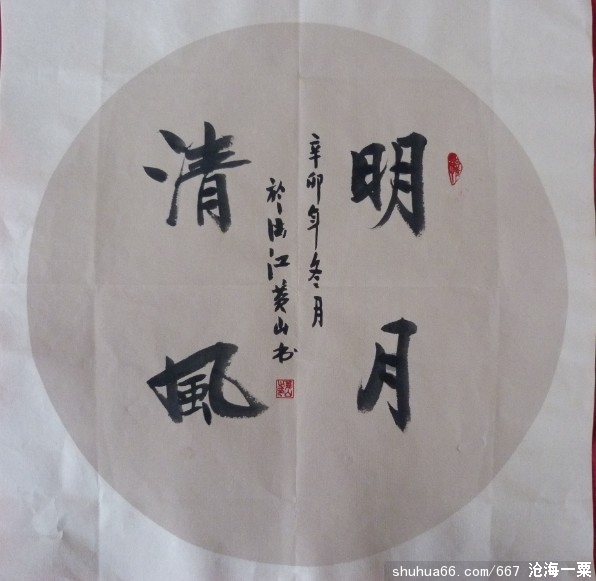 明月
清風
辛卯年冬月
於江黄山书
shuhua66.com/667 沧海一粟